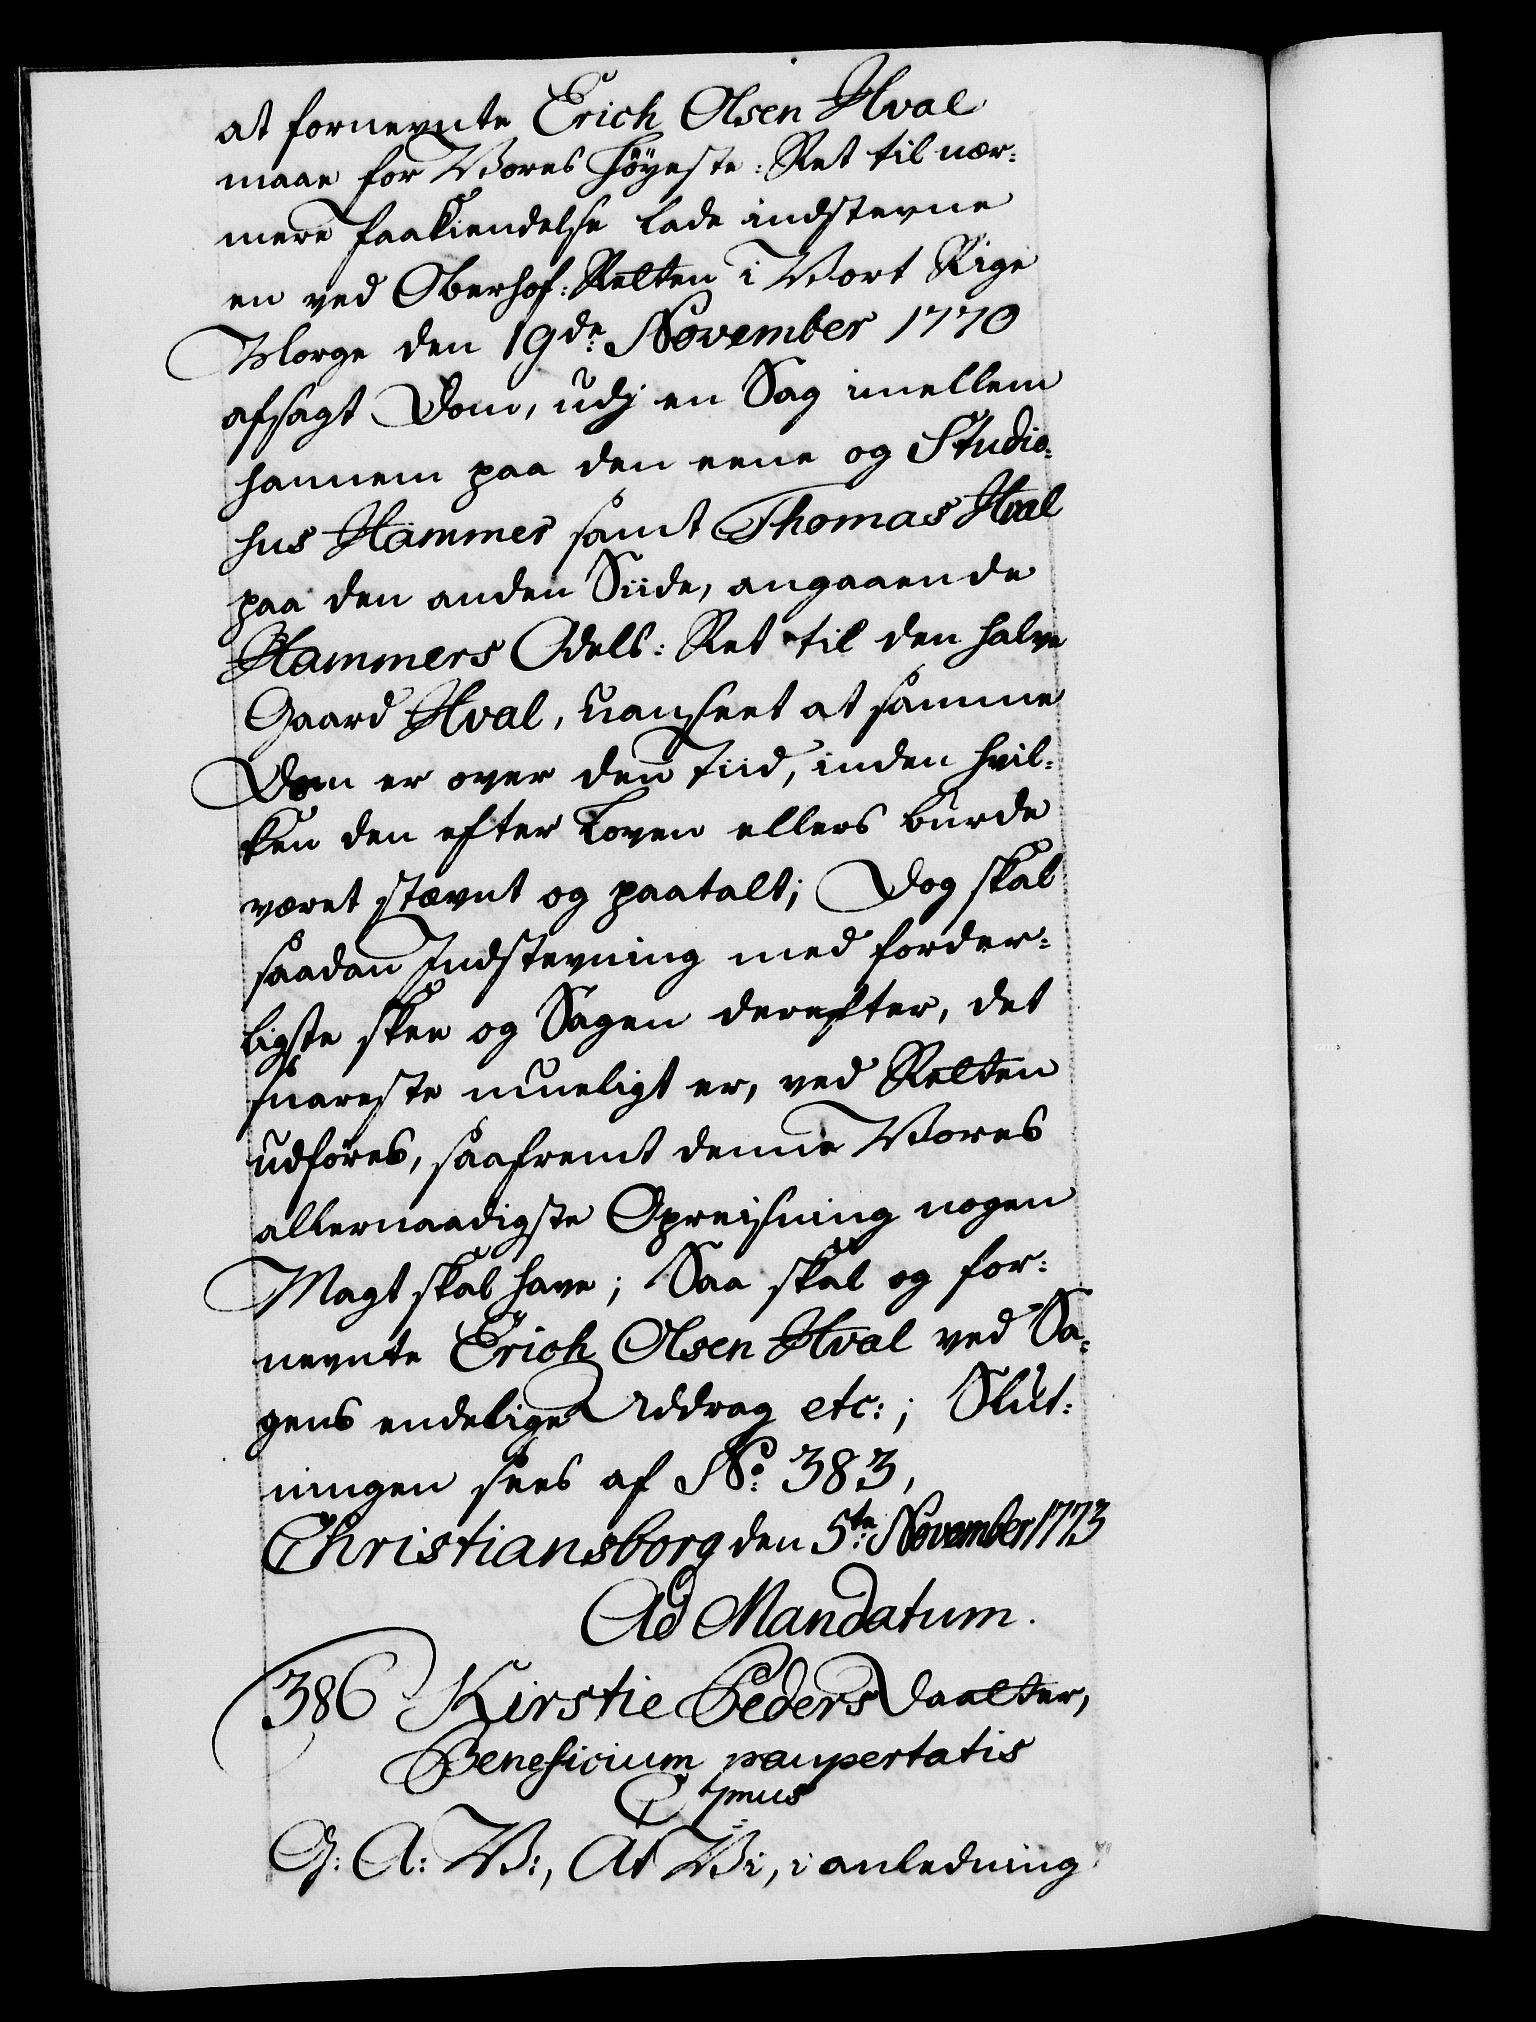 at fornevnte Erich Olsen Hval
maae for Vores Höyeste: Ret til nær:
mere Paakiendelse lade indstevne
en ved Oberhof: Retten i Vort Rige
Norge den 19de November 1770
afsagt Dom, udj en Sag imellem
hannem paa den eene og Studio:
sus Hammer samt Thomas Hval
paa den anden Siide, angaaende
Hammers Odels: Ret til den halve
Gaard Hval, uanseet at samme
Dom er over den Tiid, inden hvil:
ken den efter Loven ellers burde
været stævnt og paatalt; Dog skal
saadan Indstevning med forder:
ligste skee og Sagen derefter, det
snareste mueligt er, ved Retten
udføres, saafremt denne Vores
allernaadigste Opreisning nogen
Magt skal have; Saa skal og for:
nevnte Erich Olsen Hval ved Sa:
gens endelige Uddrag etc:; Slut:
ningen sees af No: 383,
Christiansborg den 5te: November 1773
Ad Mandatum.
386 Kirstie Peders Daatter,
Beneficium paupertatis
G: A: V:, At Vi, i anledning